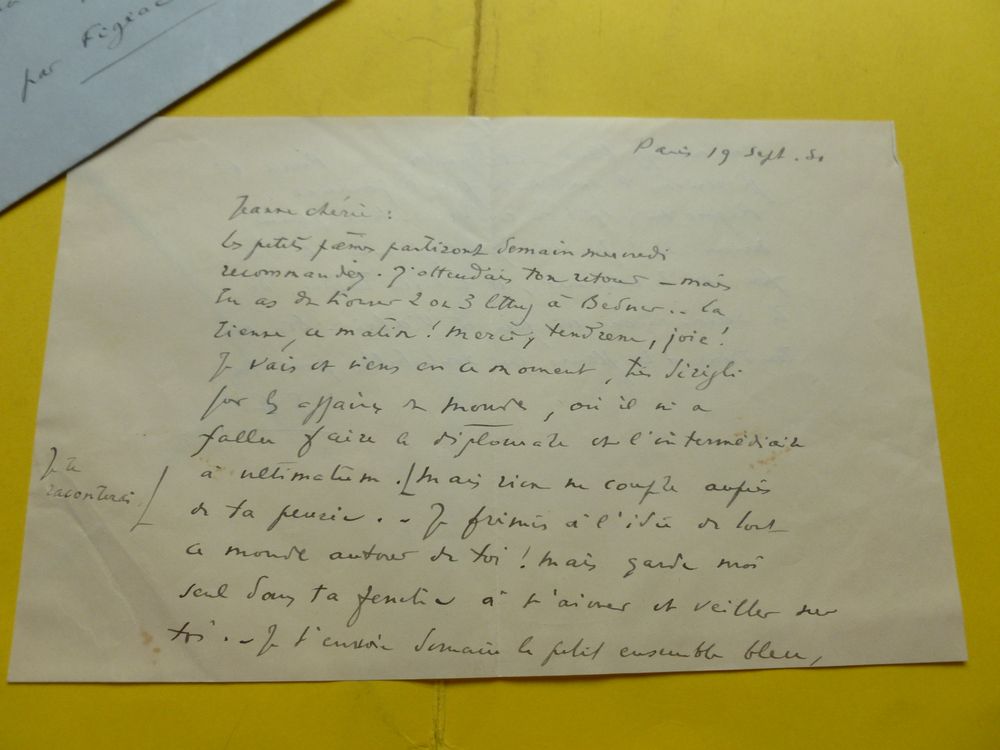 par Figeac
Paris 19 Sept. 50
Jeanne chérie :
Les petits poèmes partiront demain mercredi
recommandés. J'attendais ton retour – mais
tu as dû trouver 2 ou 3 à Béduer.. La
tienne, ce matin ! Merci, tendresse, joie !
Je vais et viens en ce moment, très
par les affaires du monde, où il m'a
fallu faire le diplomate et l'intermédiaire
à ultimatum. [Mais rien ne compte auprès
Je te
raconterai. [
de ta pensée. – Je frémis à l'idée de tout
ce monde autour de toi ! Mais garde moi
seul dans ta à t'aimer et veiller sur
toi. – Je t'envoie demain le petit ensemble bleu,